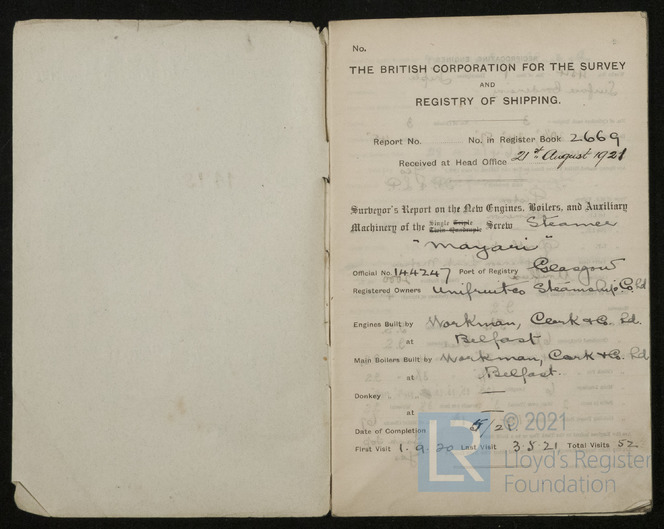 No.
THE BRITISH CORPORATION FOR THE SURVEY
AND
REGISTRY OF SHIPPING.
Report No. No. in Register Book 2669
Received at Head Office 21st August 1921
Surveyor's Report on the New Engines, Boilers, and Auxiliary
Machinery of the Single Triple Twin Quadruple Screw Steamer
"Mayari"
Official No. 144247 Port of Registry Glasgow
Registered Owners Unifruitco Steamship Co. Ld
Engines Built by Workman, Clark & Co. Ld.
at Belfast
Main Boilers Built by Workman, Clark & Co. Ld
at Belfast.
Donkey —
at —
Date of Completion 5/21.
First Visit 1.9.20 Last Visit 3.5.21 Total Visits 52
LR © 2021
Lloyd's Register
Foundation